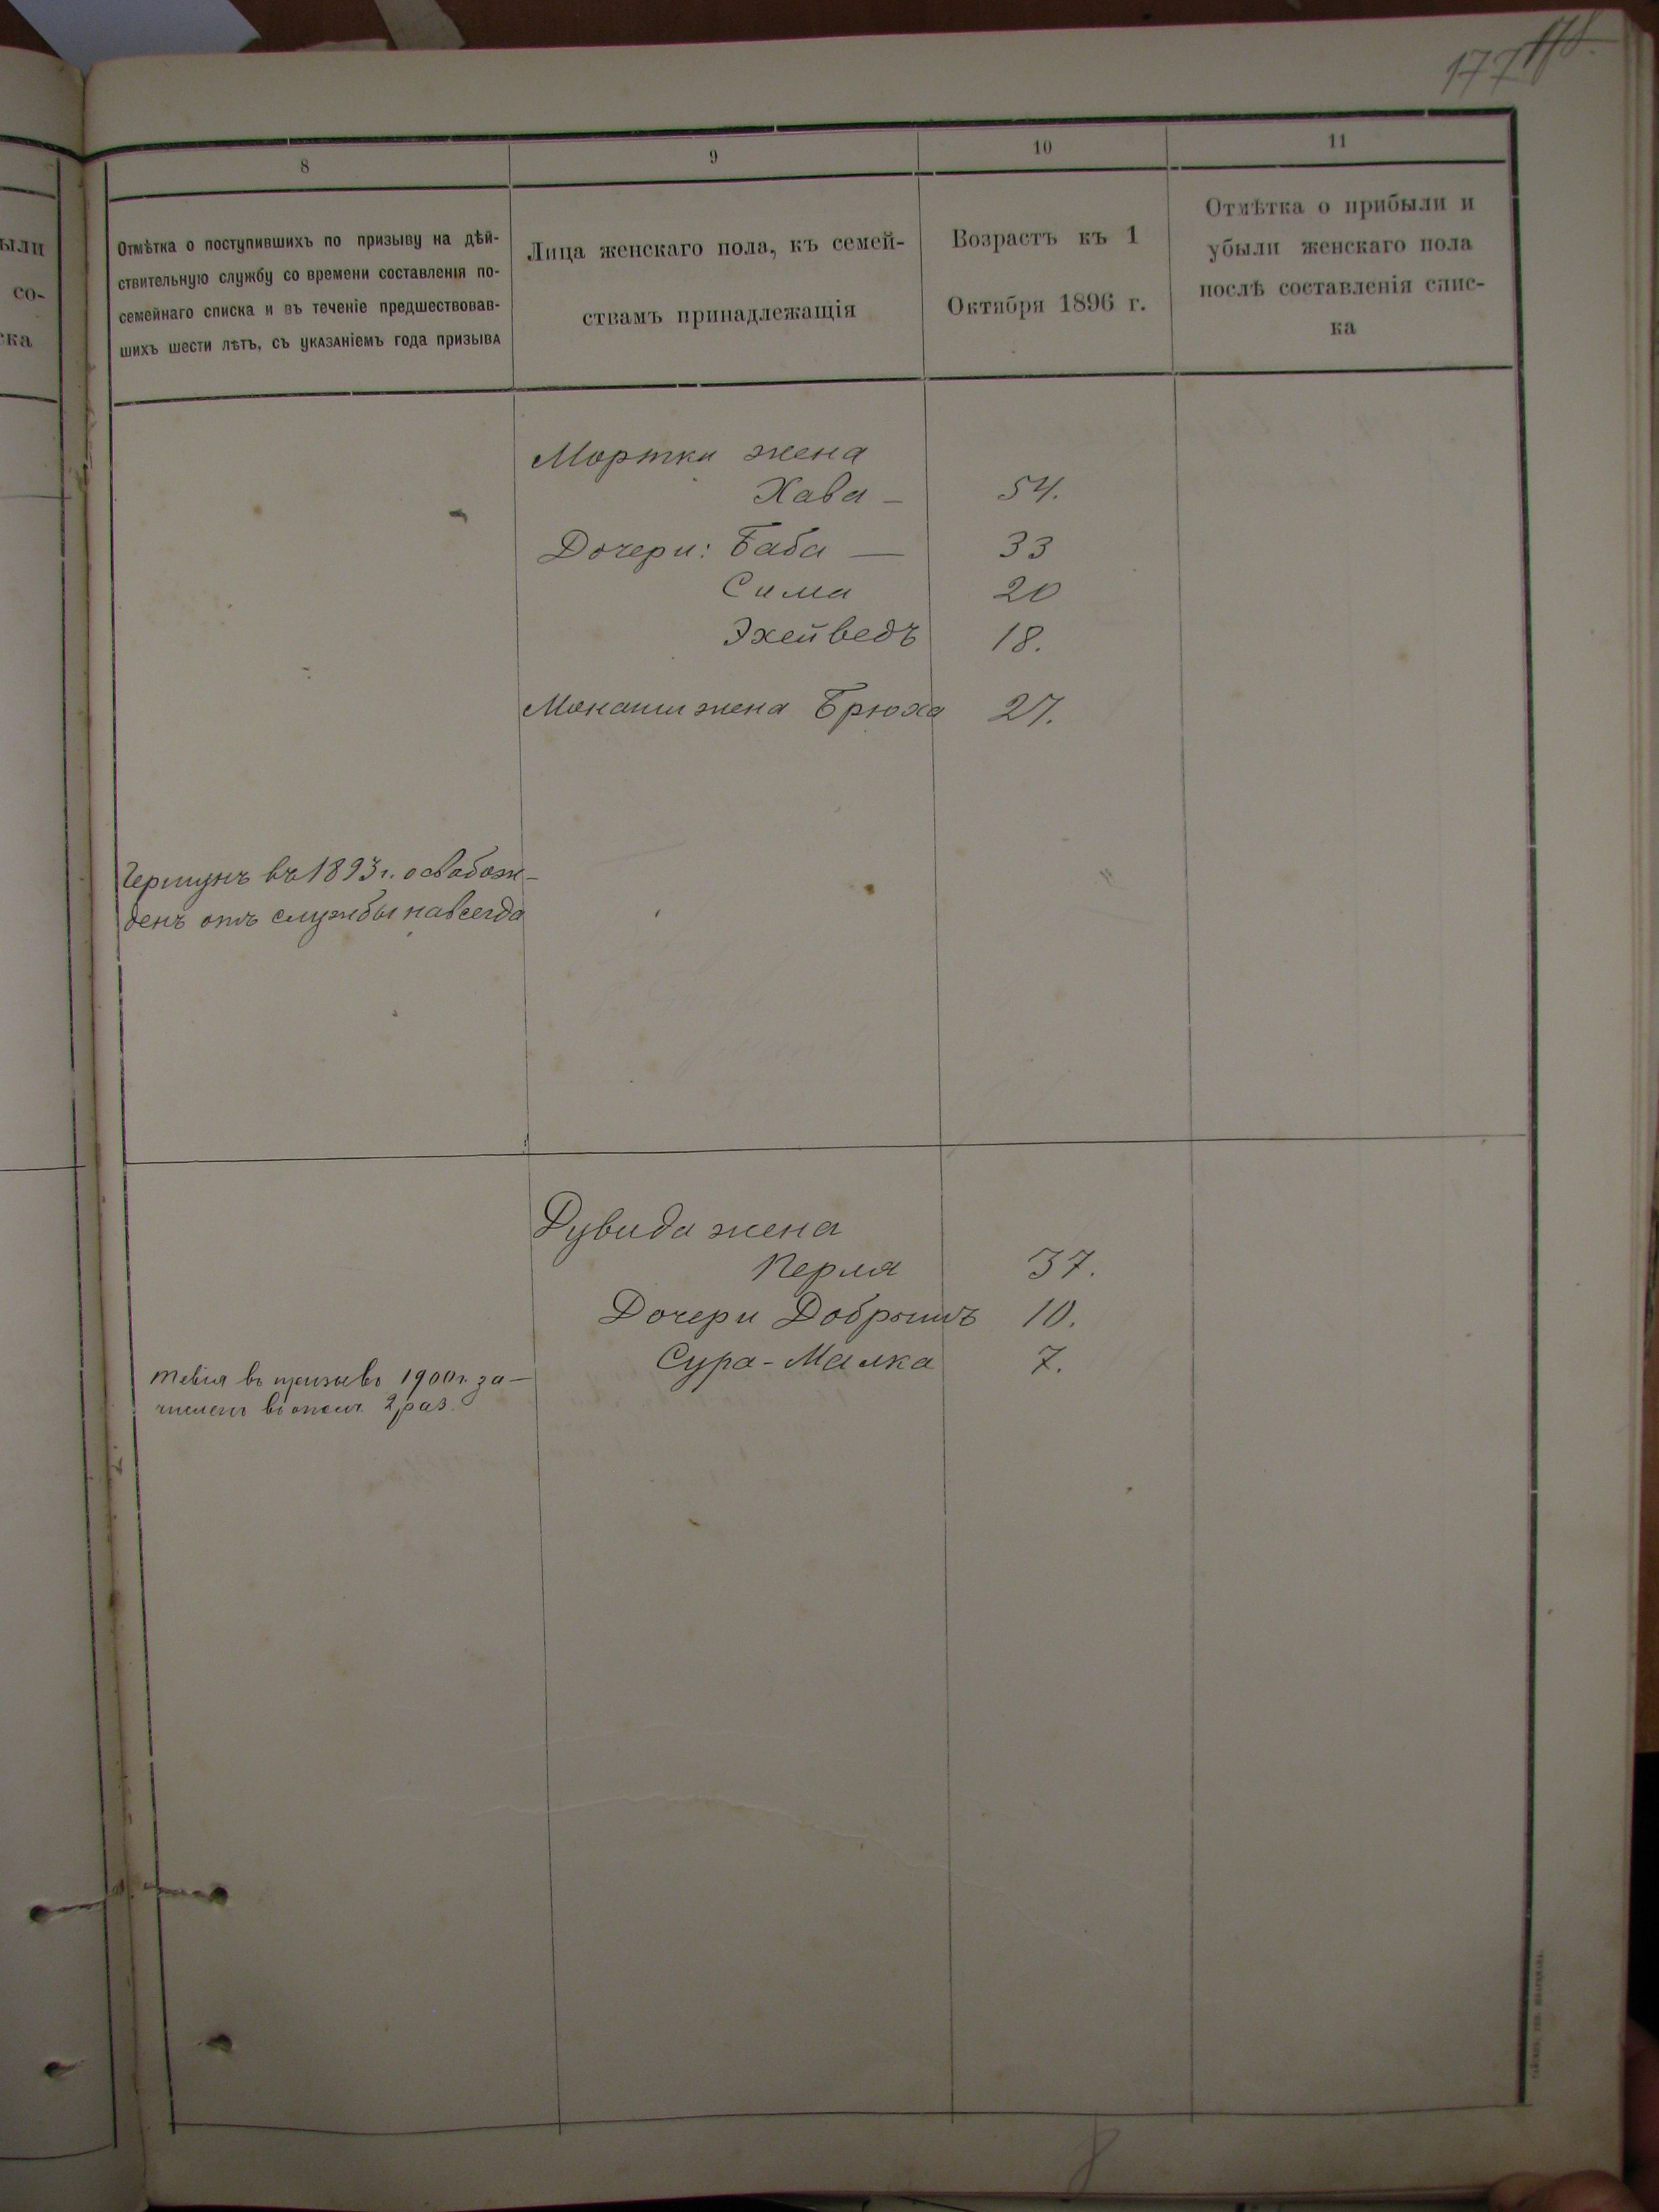 177
8
9
10
11
ыли
со-
ска
Отмѣтка о поступившихъ по призыву на дѣй-
ствительную службу со времени составленія по-
семейнаго списка и въ теченіе предшествовав-
шихъ шести лѣтъ, съ указаніемъ года призыва
Лица женскаго пола, къ семей-
ствамъ принадлежащія
Возрастъ къ 1
Октября 1896 г.
Отмѣтка о прибыли и
убыли женскаго пола
послѣ составленія спис-
ка
Мортки жена
Хава — 54.
Дочери: Баба — 33
Сима 20
Эхейведъ 18.
Монаши жена Брюха 27.
Гершунъ въ 1893 г. освобож-
денъ отъ службы навсегда
Дувида жена
Перля 37.
Дочери Добрышъ 10.
Сура-Малка 7.
Тевія въ призывъ 1900 г. за-
численъ въ ополч. 2 раз.